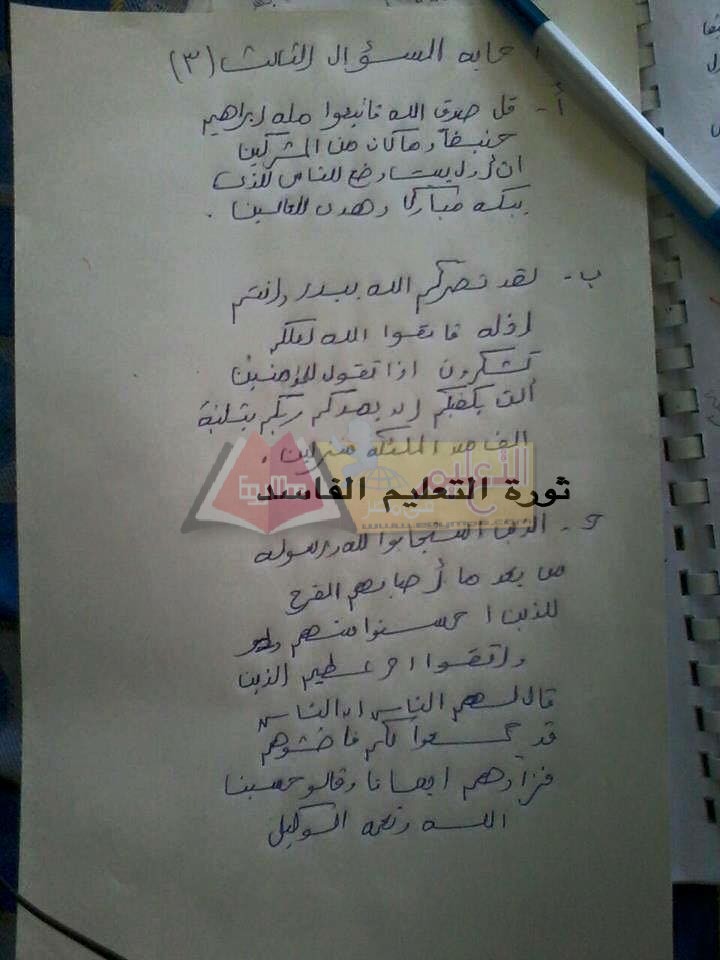 احابه السؤال الثالث (٣)
أ- قل صدق الله فاتبعوا مله ابراهيم
حنيفا وما كان من المشركين
ان أول بيت وضع للناس للذى
ببكه مباركا وهدى للعالمين .
ب- لقد نصركم الله ببدر وانتم
اذله فاتقوا الله لعلكم
تشكرون اذا تقول للمؤمنين
ألن يكفيكم ان يمدكم ربكم بثلثة
الف من الملئكه منزلين .
التعليم
ثورة التعليم الفاسد
ج- الذين استجابوا لله ورسوله
من بعد ما أصابهم القرح
للذين احسنوا منهم
واتقوا اجر عظيم الذين
قال لهم الناس ان الناس
قد جمعوا لكم فاخشوهم
فزادهم ايمانا وقالو حسبنا
الله ونعمه الوكيل